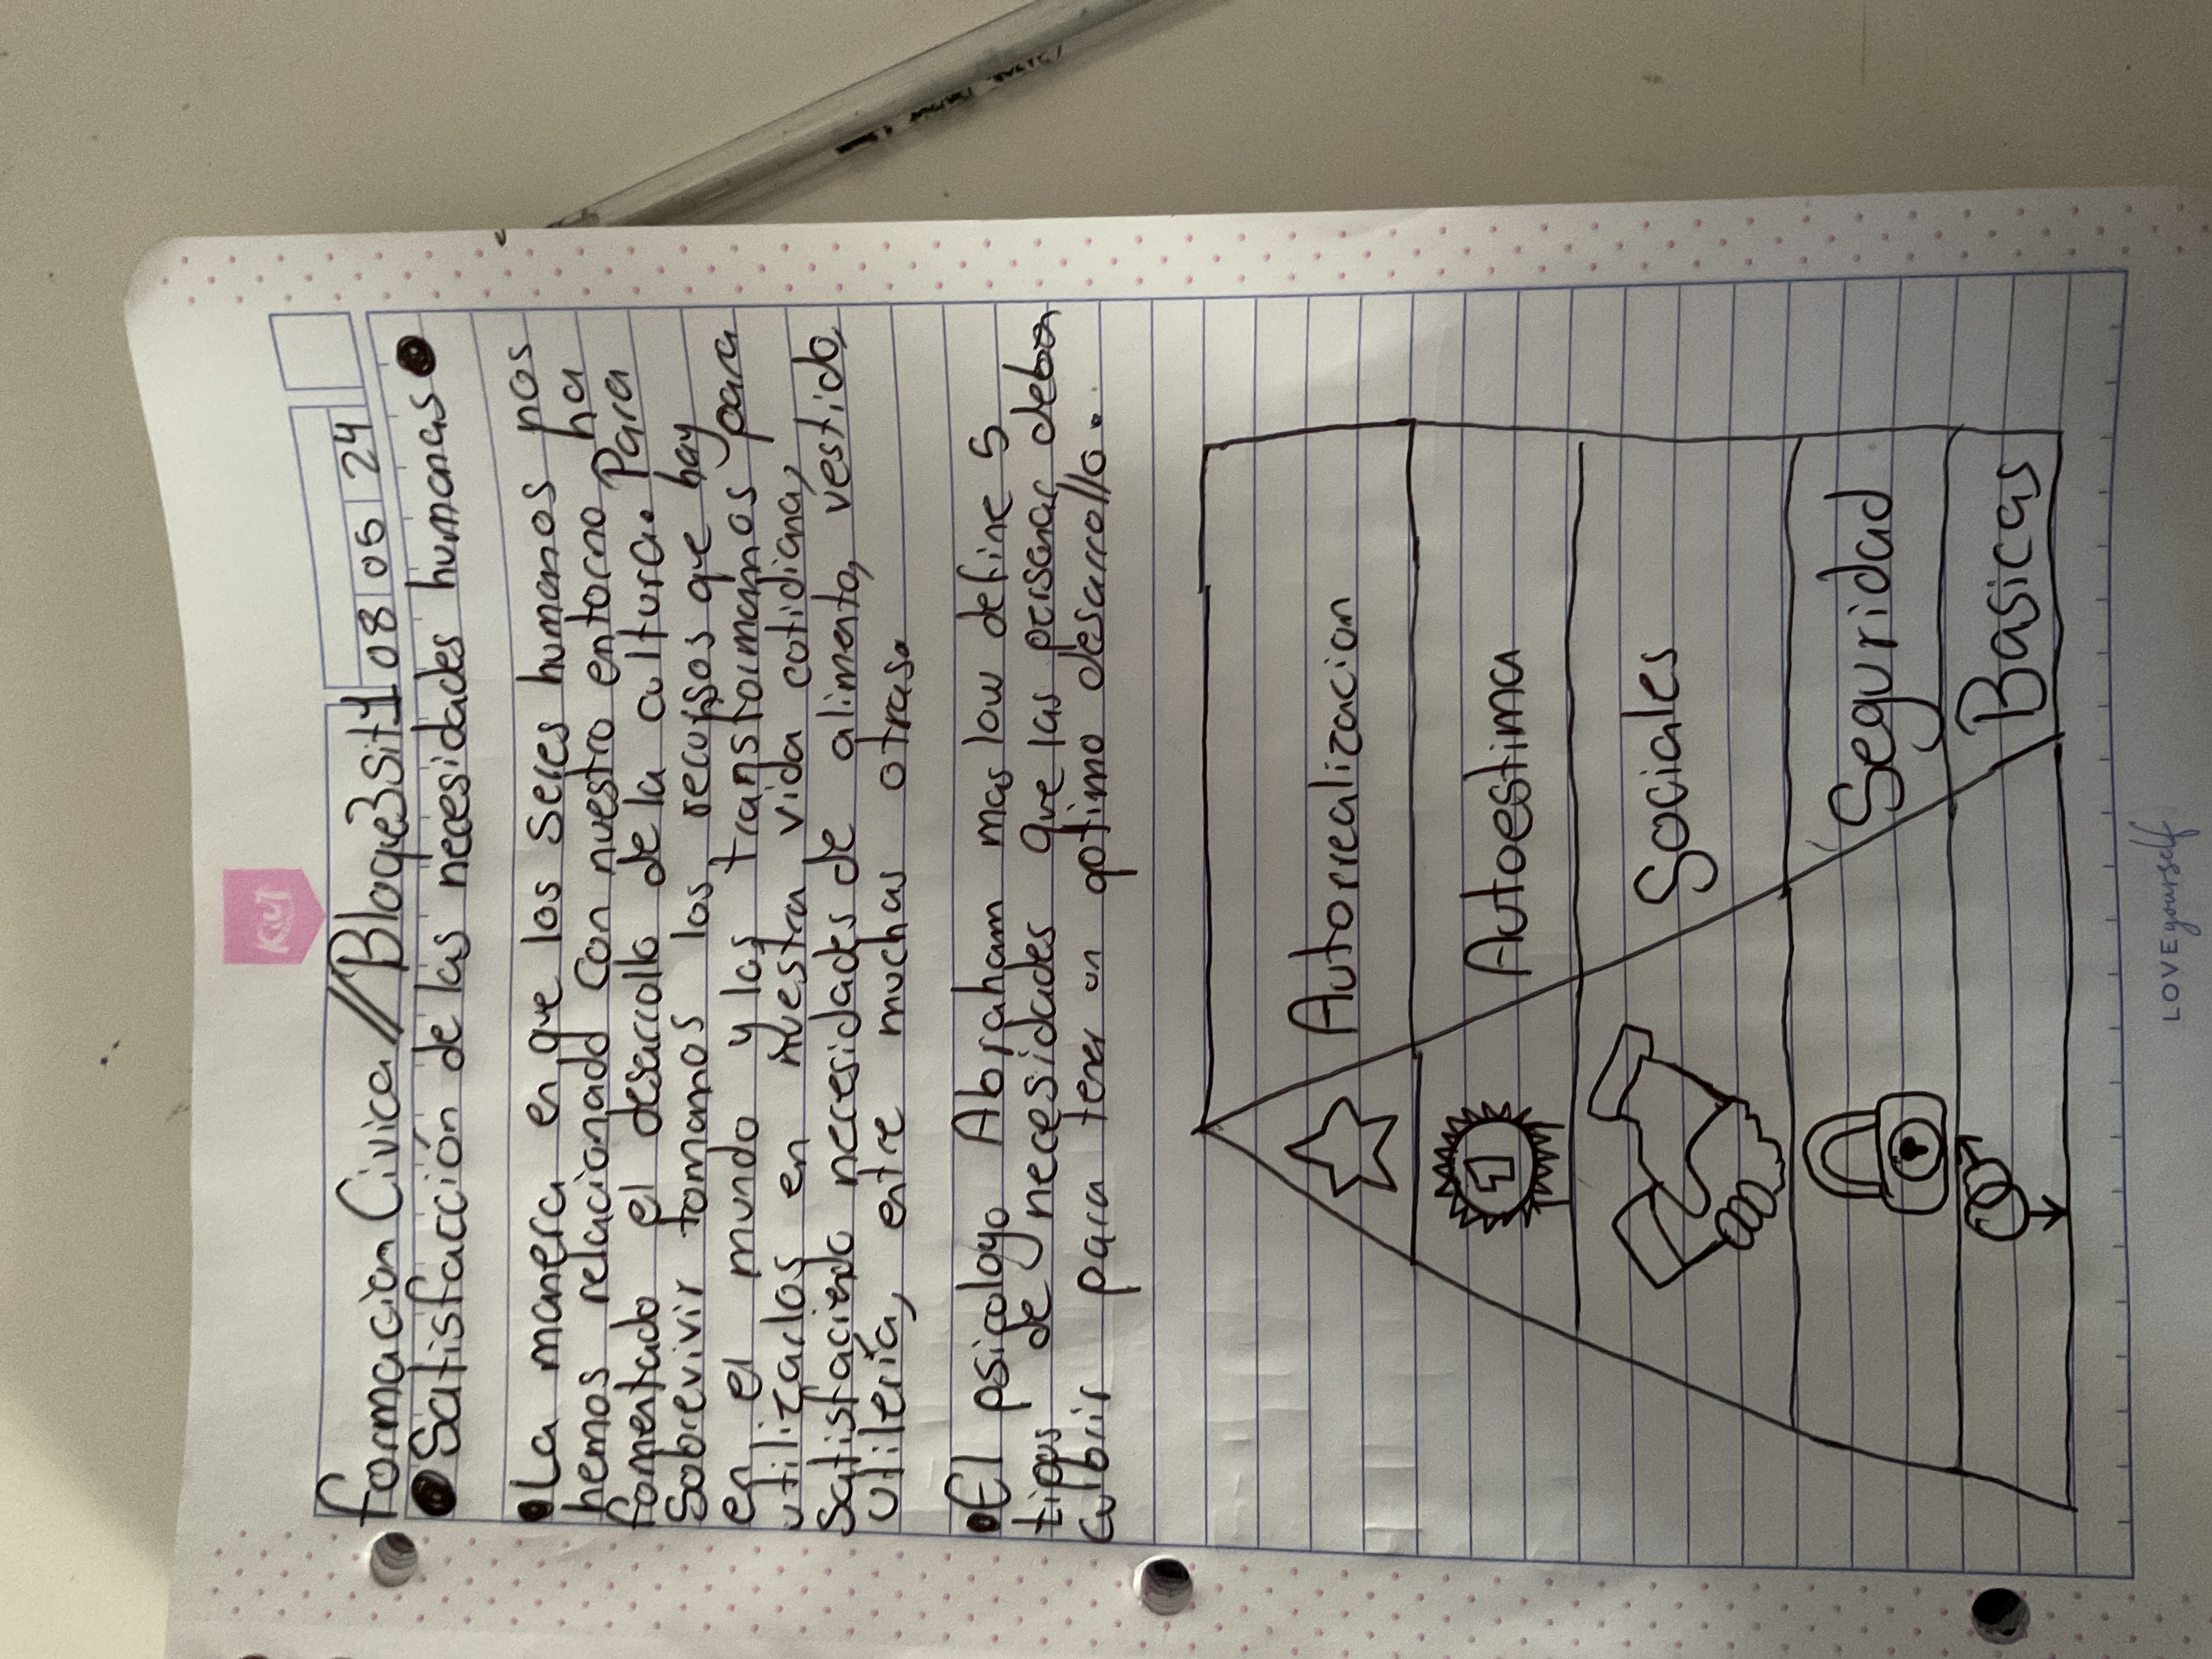 Kiut
formacion Civica//Bloque3sit1 08 05 24
Satisfacción de las necesidades humanas
La manera en que los seres humanos nos
hemos relacionado con nuestro entorno ha
fomentado el desarrollo de la cultura. Para
Sobrevivir tomamos los recursos que hay
en el mundo y las transformamos para
utilizarlos en nuestra vida cotidiana,
satisfaciendo necesidades de alimento, vestido,
utilería, entre muchas otras.
El psicologo Abraham mas low define 5
tipos de necesidades que las personas deben
cubrir para tener un optimo desarrollo.
Autorrealizacion
1 Autoestima
Sociales
Seguridad
Basicas
LOVE yourself